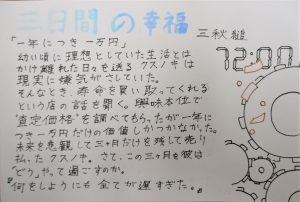 三日間の幸福
三秋縋
「一年につき一万円」
幼い頃に理想としていた生活とは
かけ離れた日々を送るクスノキは
現実に嫌気がさしていた。
そんなとき、寿命を買い取ってくれる
という店の話を聞く。興味本位で
"査定価格"を調べてもらったが一年に
つき一万円だけの価値しかつかなかった。
未来を悲観して三ヶ月だけを残して売り
払ったクスノキ。さて、この三ヶ月を彼は
"どう"やって過ごすのか。
『何をしようにも全てが遅すぎた。』
72:00